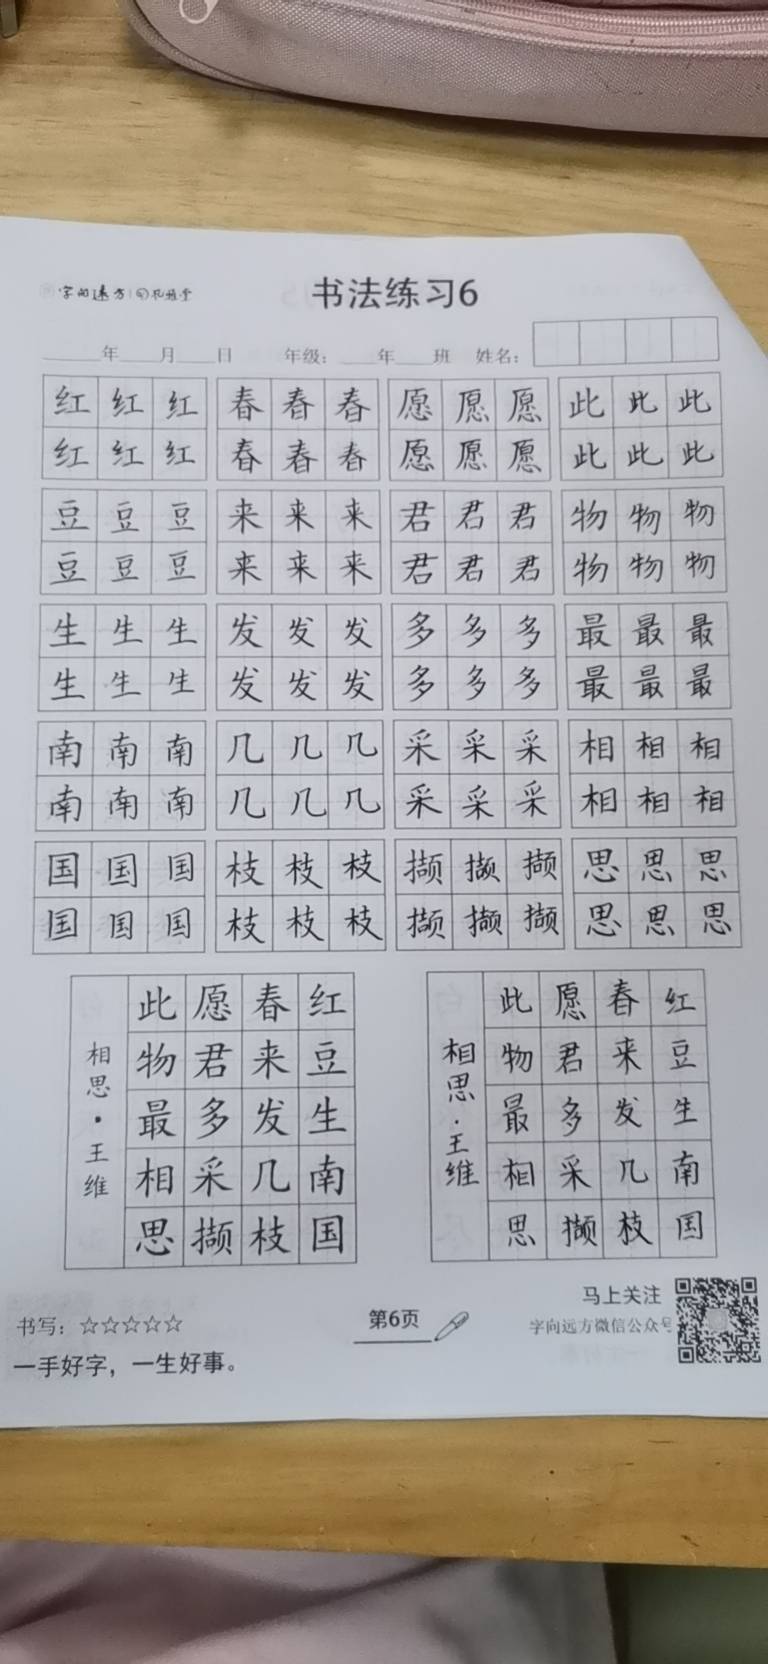 字向远方
书法练习6
年 月 日 年级： 年 班 姓名：
红 红 红 春 春 春 愿 愿 愿 此 此 此
红 红 红 春 春 春 愿 愿 愿 此 此 此
豆 豆 豆 来 来 来 君 君 君 物 物 物
豆 豆 豆 来 来 来 君 君 君 物 物 物
生 生 生 发 发 发 多 多 多 最 最 最
生 生 生 发 发 发 多 多 多 最 最 最
南 南 南 几 几 几 采 采 采 相 相 相
南 南 南 几 几 几 采 采 采 相 相 相
国 国 国 枝 枝 枝 撷 撷 撷 思 思 思
国 国 国 枝 枝 枝 撷 撷 撷 思 思 思
红豆生南国
春来发几枝
愿君多采撷
此物最相思
相思·王维
红豆生南国
春来发几枝
愿君多采撷
此物最相思
相思·王维
书写：☆☆☆☆☆
一手好字，一生好事。
第6页
马上关注
字向远方微信公众号